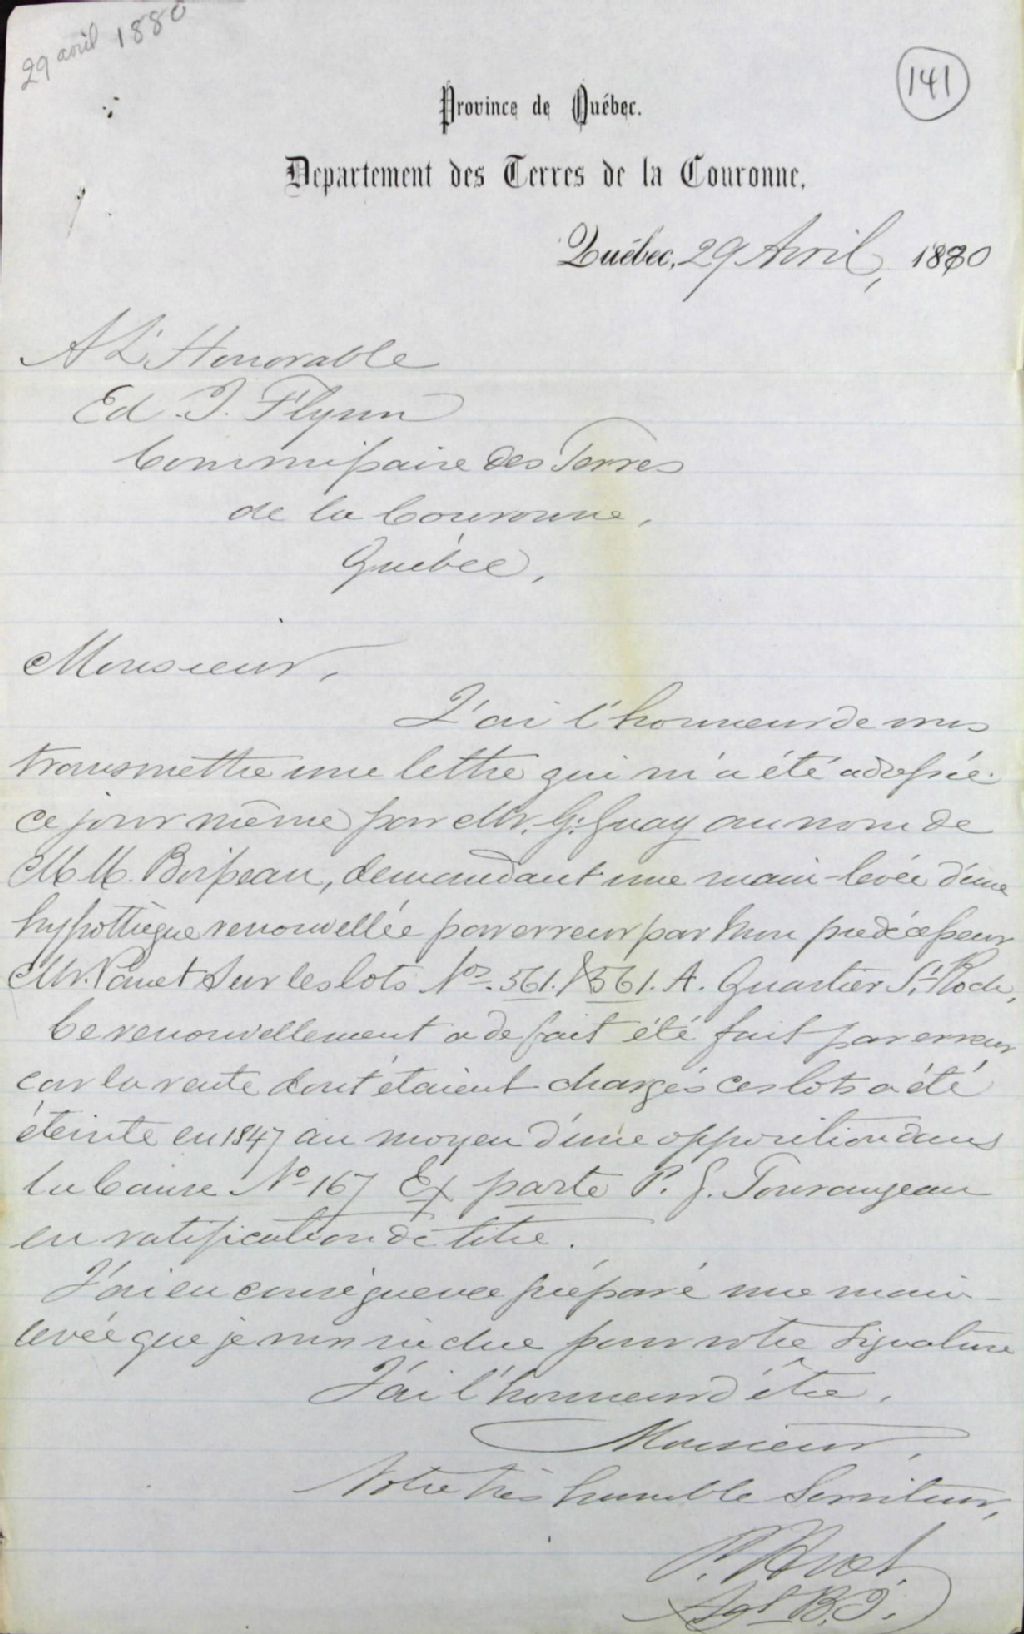 29 avril 1880
141
Province de Québec.
Departement des Terres de la Couronne.
Québec, 29 Avril, 1880
A L'Honorable
Ed. J. Flynn
Commissaire des Terres
de la Couronne,
Québec,
Monsieur,
J'ai l'honneur de vous
transmettre une lettre qui m'a été adressée
ce jour même par Mr. G. Guay au nom de
M M. Boisseau, demandant une main-levée d'une
hypothèque renouvellée par erreur par mon predécesseur
Mr. Panet sur les lots Nos. 561. & 561. A. Quartier St. Roch,
Ce renouvellement a de fait été fait par erreur
car la rente dont étaient chargés ces lots a été
éteinte en 1847 au moyen d'une opposition dans
la Cause No 167 Ex parte P. G. Tourangeau
en ratification de titre.
J'ai en conséquence préparé une main-
levée que je vous inclue pour votre signature
J'ai l'honneur d'être,
Monsieur,
Votre très humble Serviteur,
Agt B.J.